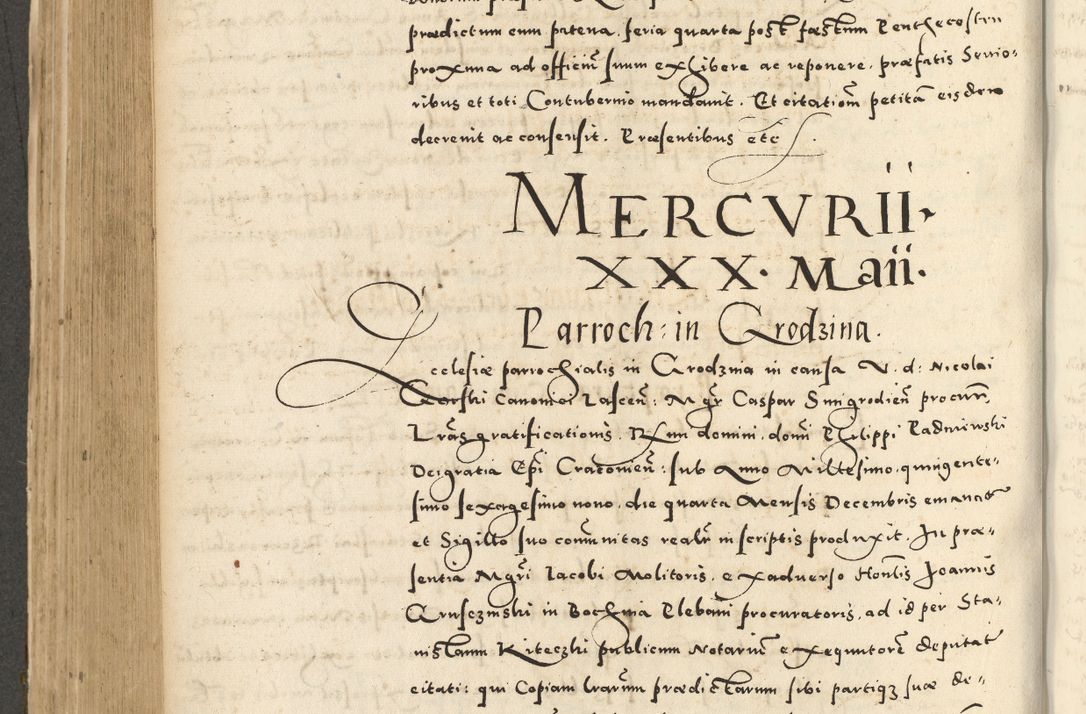 prædictum cum patena, feria quarta post fæstum Penthecosten
proxima ad officiũ suum exhibere ac reponere, præfatis Senio-
ribus et toti Contubernio mandavit. Et citatioñ petitã eisdem
decrevit ac consensit. Præsentibus etc
MERCVRII.
XXX. Maii.
Parroch: in Grodzina.
Ecclesiæ parrochialis in Grodzina in causa V. d: Nicolai
Gorski Canonici Lasceñ: Mgr Caspar Smigrodieñ procur
Lras gratificationis, Rmi domini, domi Philippi Padniewski
Dei gratia Epi Cracovieñ: sub Anno Millesimo, quingente-
simo sexagesimo nono, die quarta Mensis Decembris emanat
et Sigillo suo communitas realr in scriptis produxit. In præ-
sentia Mgri Iacobi Molitoris, e x adverso Honlis Joannis
Gruszinski in Bochnia Plebani procuratoris, ad id per Sta-
nislaum Kiteczki publicum Notariũ exequutorẽ deputat
citati: qui Copiam lrarum prædictarum sibi partiq3 suæ de-